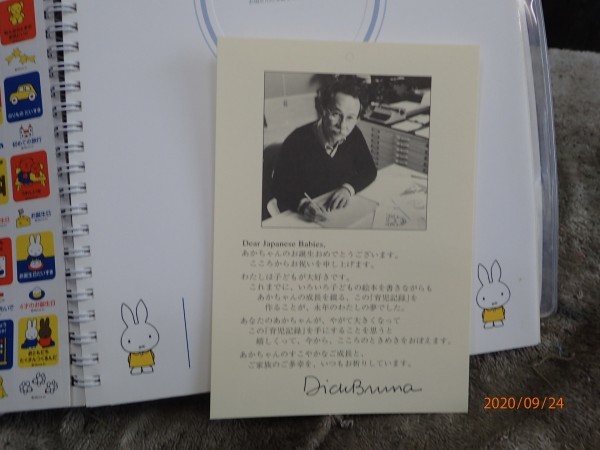 Dear Japanese Babies,
あかちゃんのお誕生おめでとうございます。
こころからお祝いを申し上げます。
わたしは子どもが大好きです。
これまでに、いろいろ子どもの絵本を書きながらも
あかちゃんの成長を綴る、この「育児記録」を
作ることが、永年のわたしの夢でした。
あなたのあかちゃんが、やがて大きくなって
この「育児記録」を手にすることを思うと
嬉しくって、今から、こころのときめきをおぼえます。
あかちゃんのすこやかなご成長と、
ご家族のご多幸を、いつもお祈りしています。
Dick Bruna
のりもの だいすき
初めての旅行
お誕生日
2020/09/24